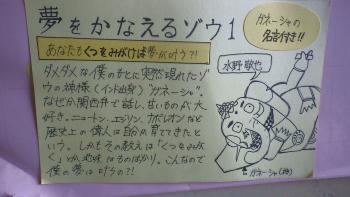 夢をかなえるゾウ1
ガネーシャの
名言付き!!
あなたもくつをみがけば夢が叶う?!
水野敬也
ダメダメな僕のもとに突然現れたゾ
ウの神様(インド出身)"ガネーシャ"。
なぜか関西弁で話し、甘いものが大
好き。ニュートン、エジソン、ナポレオンなど
歴史上の偉人は自分が育ててきたと
いう。しかもその教えは「くつをみが
く」とか、地味なものばかり。こんなので
僕の夢は叶うの?!
ガネーシャ(神)